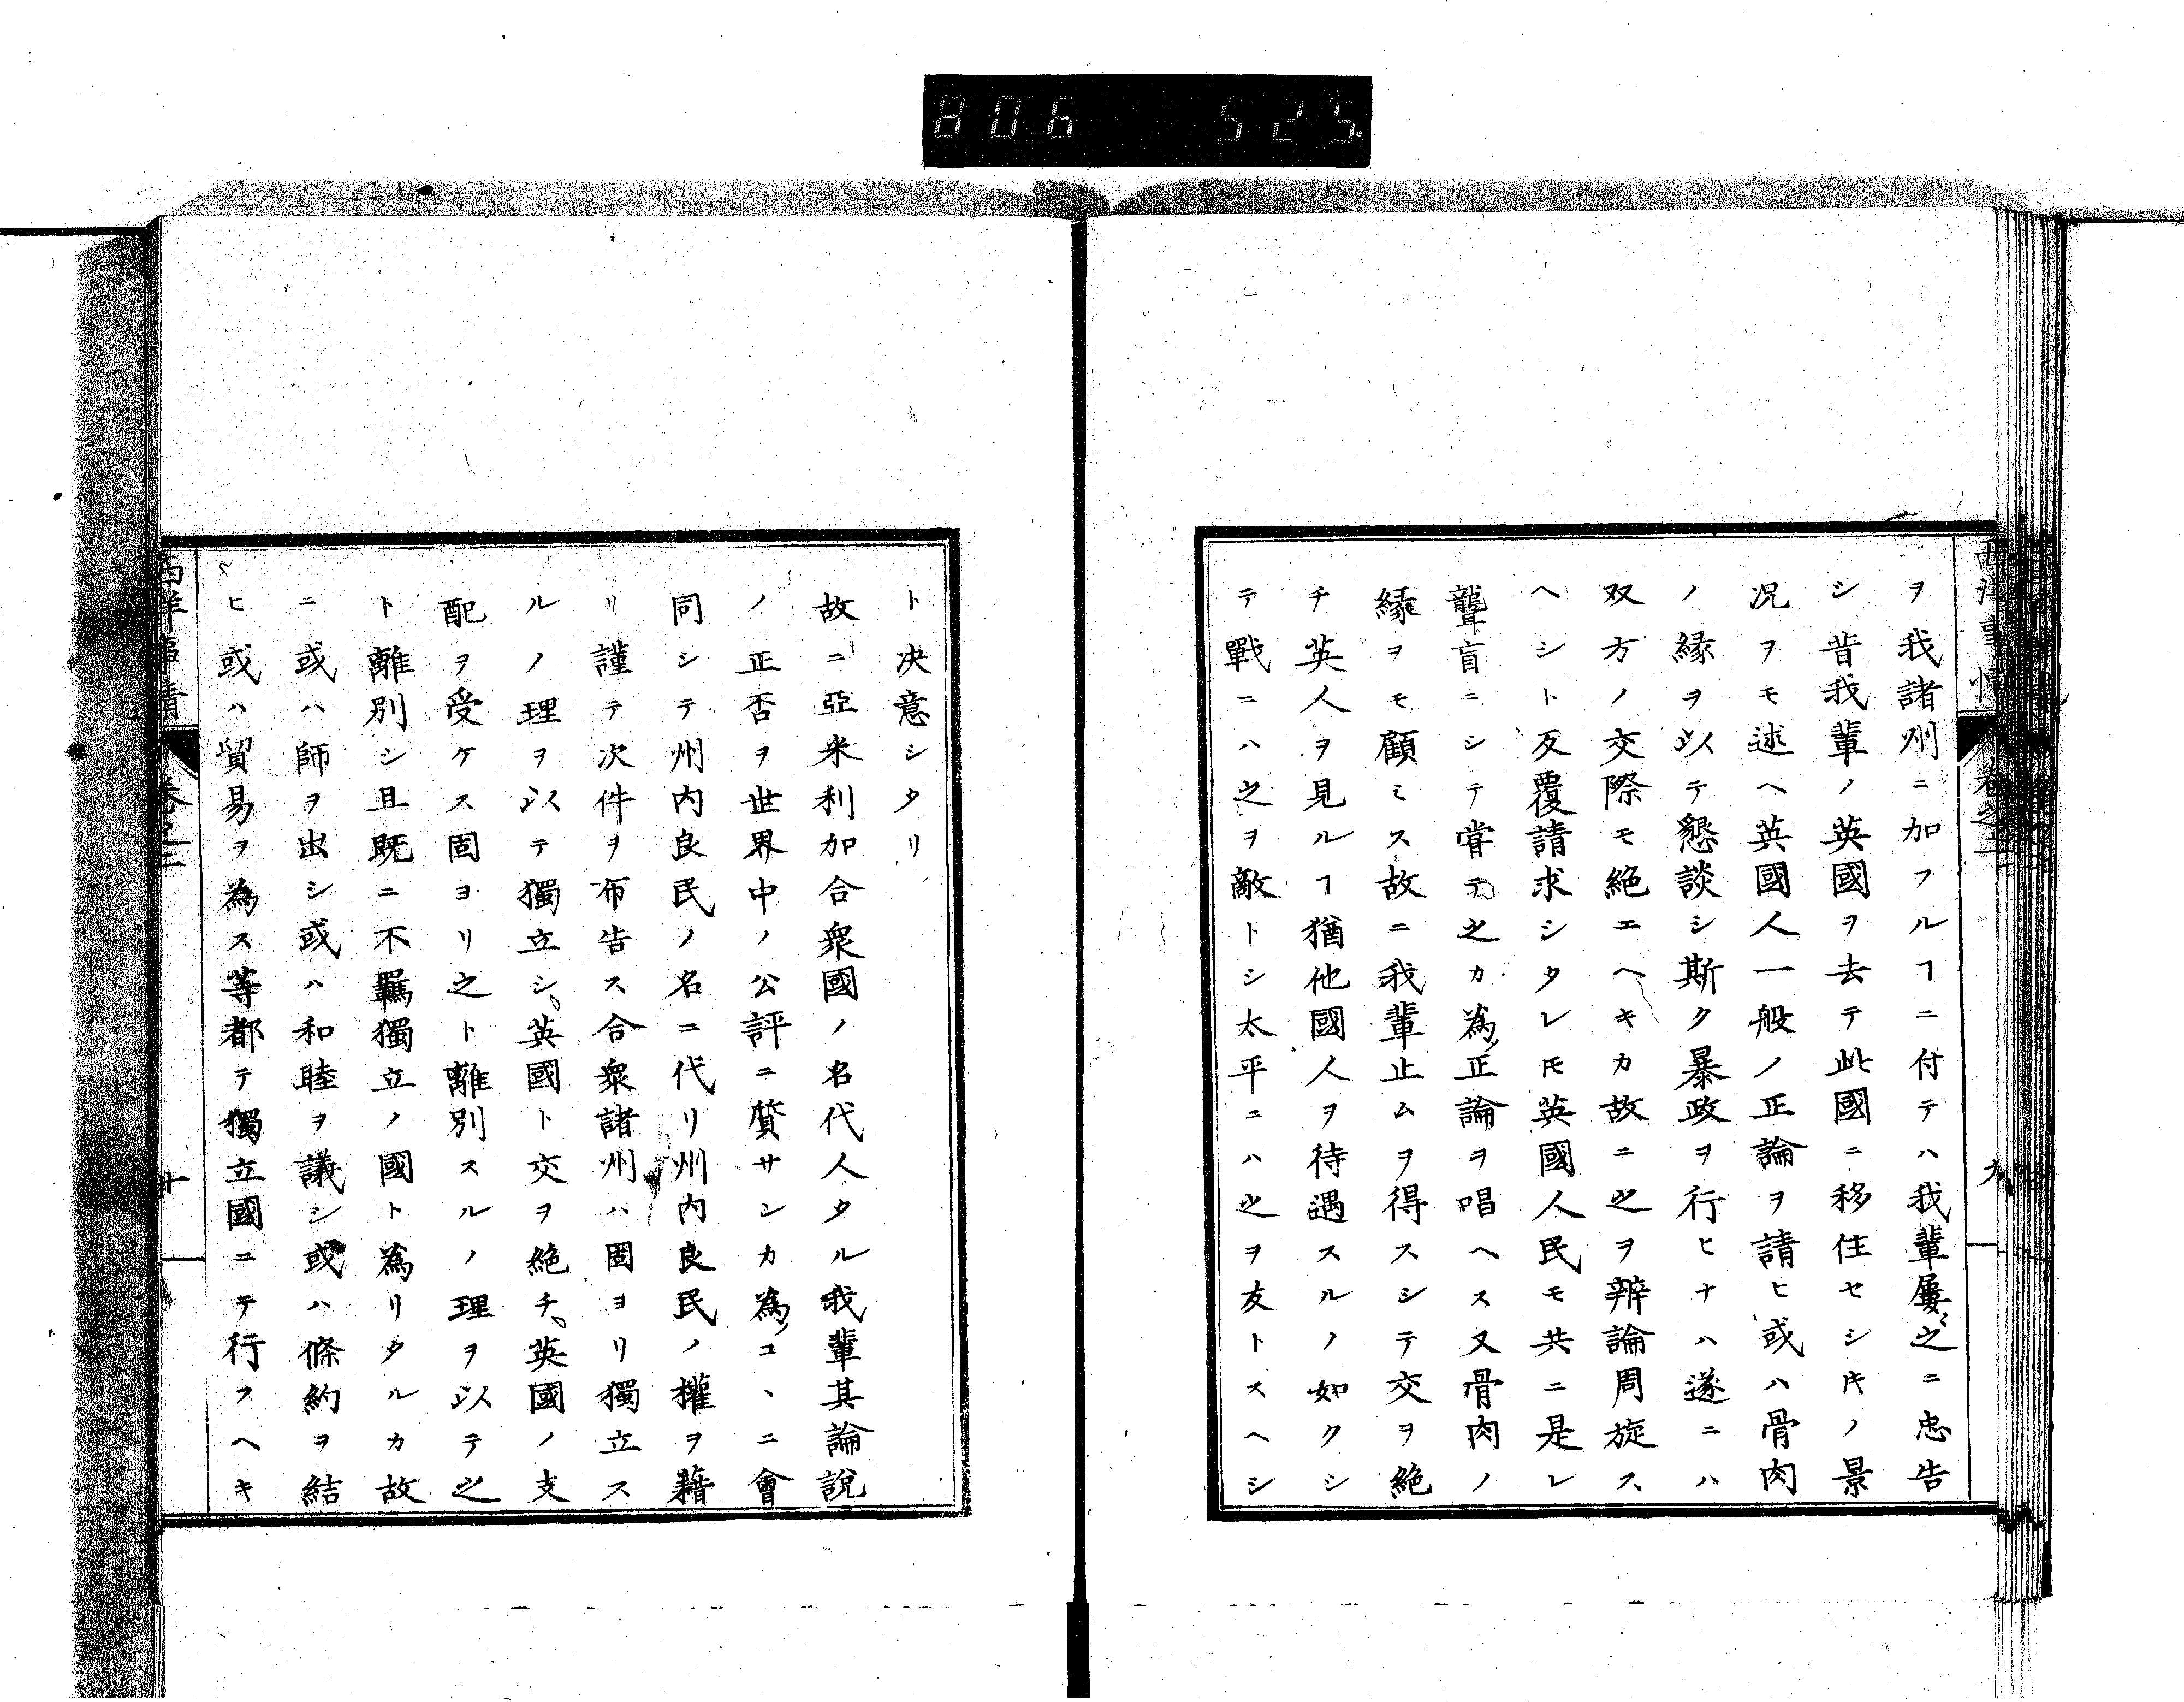 806 525.
西洋事情 卷之二 九
ヲ我諸州ニ加フルヿニ付テハ我輩屢之ニ忠告
シ昔我輩ノ英國ヲ去テ此國ニ移住セシ𪜈ノ景
況ヲモ述ヘ英國人一般ノ正論ヲ請ヒ或ハ骨肉
ノ縁ヲ以テ懇談シ斯ク暴政ヲ行ヒナハ遂ニハ
双方ノ交際モ絶エヘキカ故ニ之ヲ辨論周旋ス
ヘシト反覆請求シタレ𪜈英國人民モ共ニ是レ
聾盲ニシテ甞テ之カ為ノ正論ヲ唱ヘス又骨肉ノ
縁ヲモ顧ミス故ニ我輩止ムヲ得スシテ交ヲ絶
チ英人ヲ見ルヿ猶他國人ヲ待遇スルノ如クシ
テ戰ニハ之ヲ敵トシ太平ニハ之ヲ友トスヘシ
ト决意シタリ
故ニ亞米利加合衆國ノ名代人タル我輩其論說
ノ正否ヲ世界中ノ公評ニ質サンカ為コヽニ會
同シテ州内良民ノ名ニ代リ州内良民ノ權ヲ藉
リ謹テ次件ヲ布告ス合衆諸州ハ固ヨリ獨立ス
ルノ理ヲ以テ獨立シ英國ト交ヲ絶チ英國ノ支
配ヲ受ケス固ヨリ之ト離別スルノ理ヲ以テ之
ト離別シ且既ニ不羈獨立ノ國ト為リタルカ故
ニ或ハ師ヲ出シ或ハ和睦ヲ議シ或ハ條約ヲ結
ヒ或ハ貿易ヲ為ス等都テ獨立國ニテ行フヘキ
西洋事情 卷之二 十